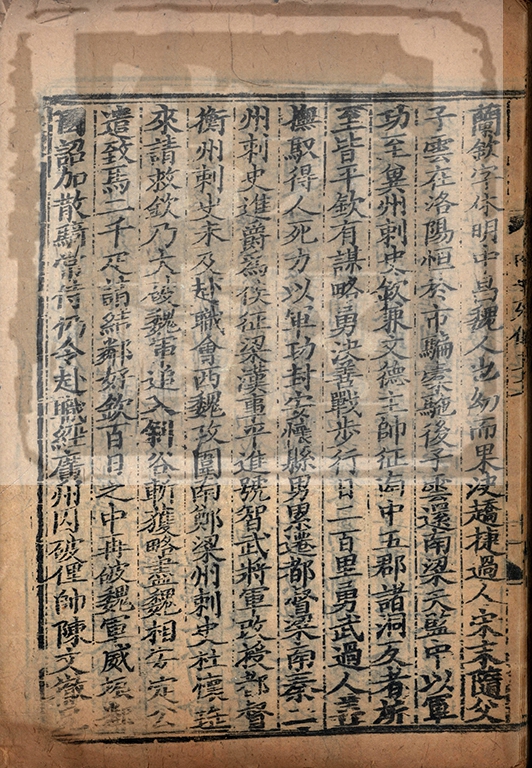 蘭欽字休明中昌魏人也幼而果決趫捷過人宋末隨父
子雲在洛陽恒於市騙橐駞後子雲還南梁天監中以軍
功至冀州刺史欽兼文德主帥征南中五郡諸洞反者所
至皆平欽有謀略勇決善戰步行日二百里勇武過人善
撫馭得人死力以軍功封安懷縣男累遷都督梁南秦二
州刺史進爵爲侯征梁漢事平進號智武將軍改授都督
衡州刺史未及赴職會西魏攻圍南鄭梁州刺史杜懷瑤
來請救欽乃大破魏軍追入斜谷斬獲略盡魏相安定公
遣致馬二千疋請結鄰好欽百日之中再破魏軍威振鄰
國詔加散騎常侍仍令赴職經廣州因破俚帥陳文徹兄